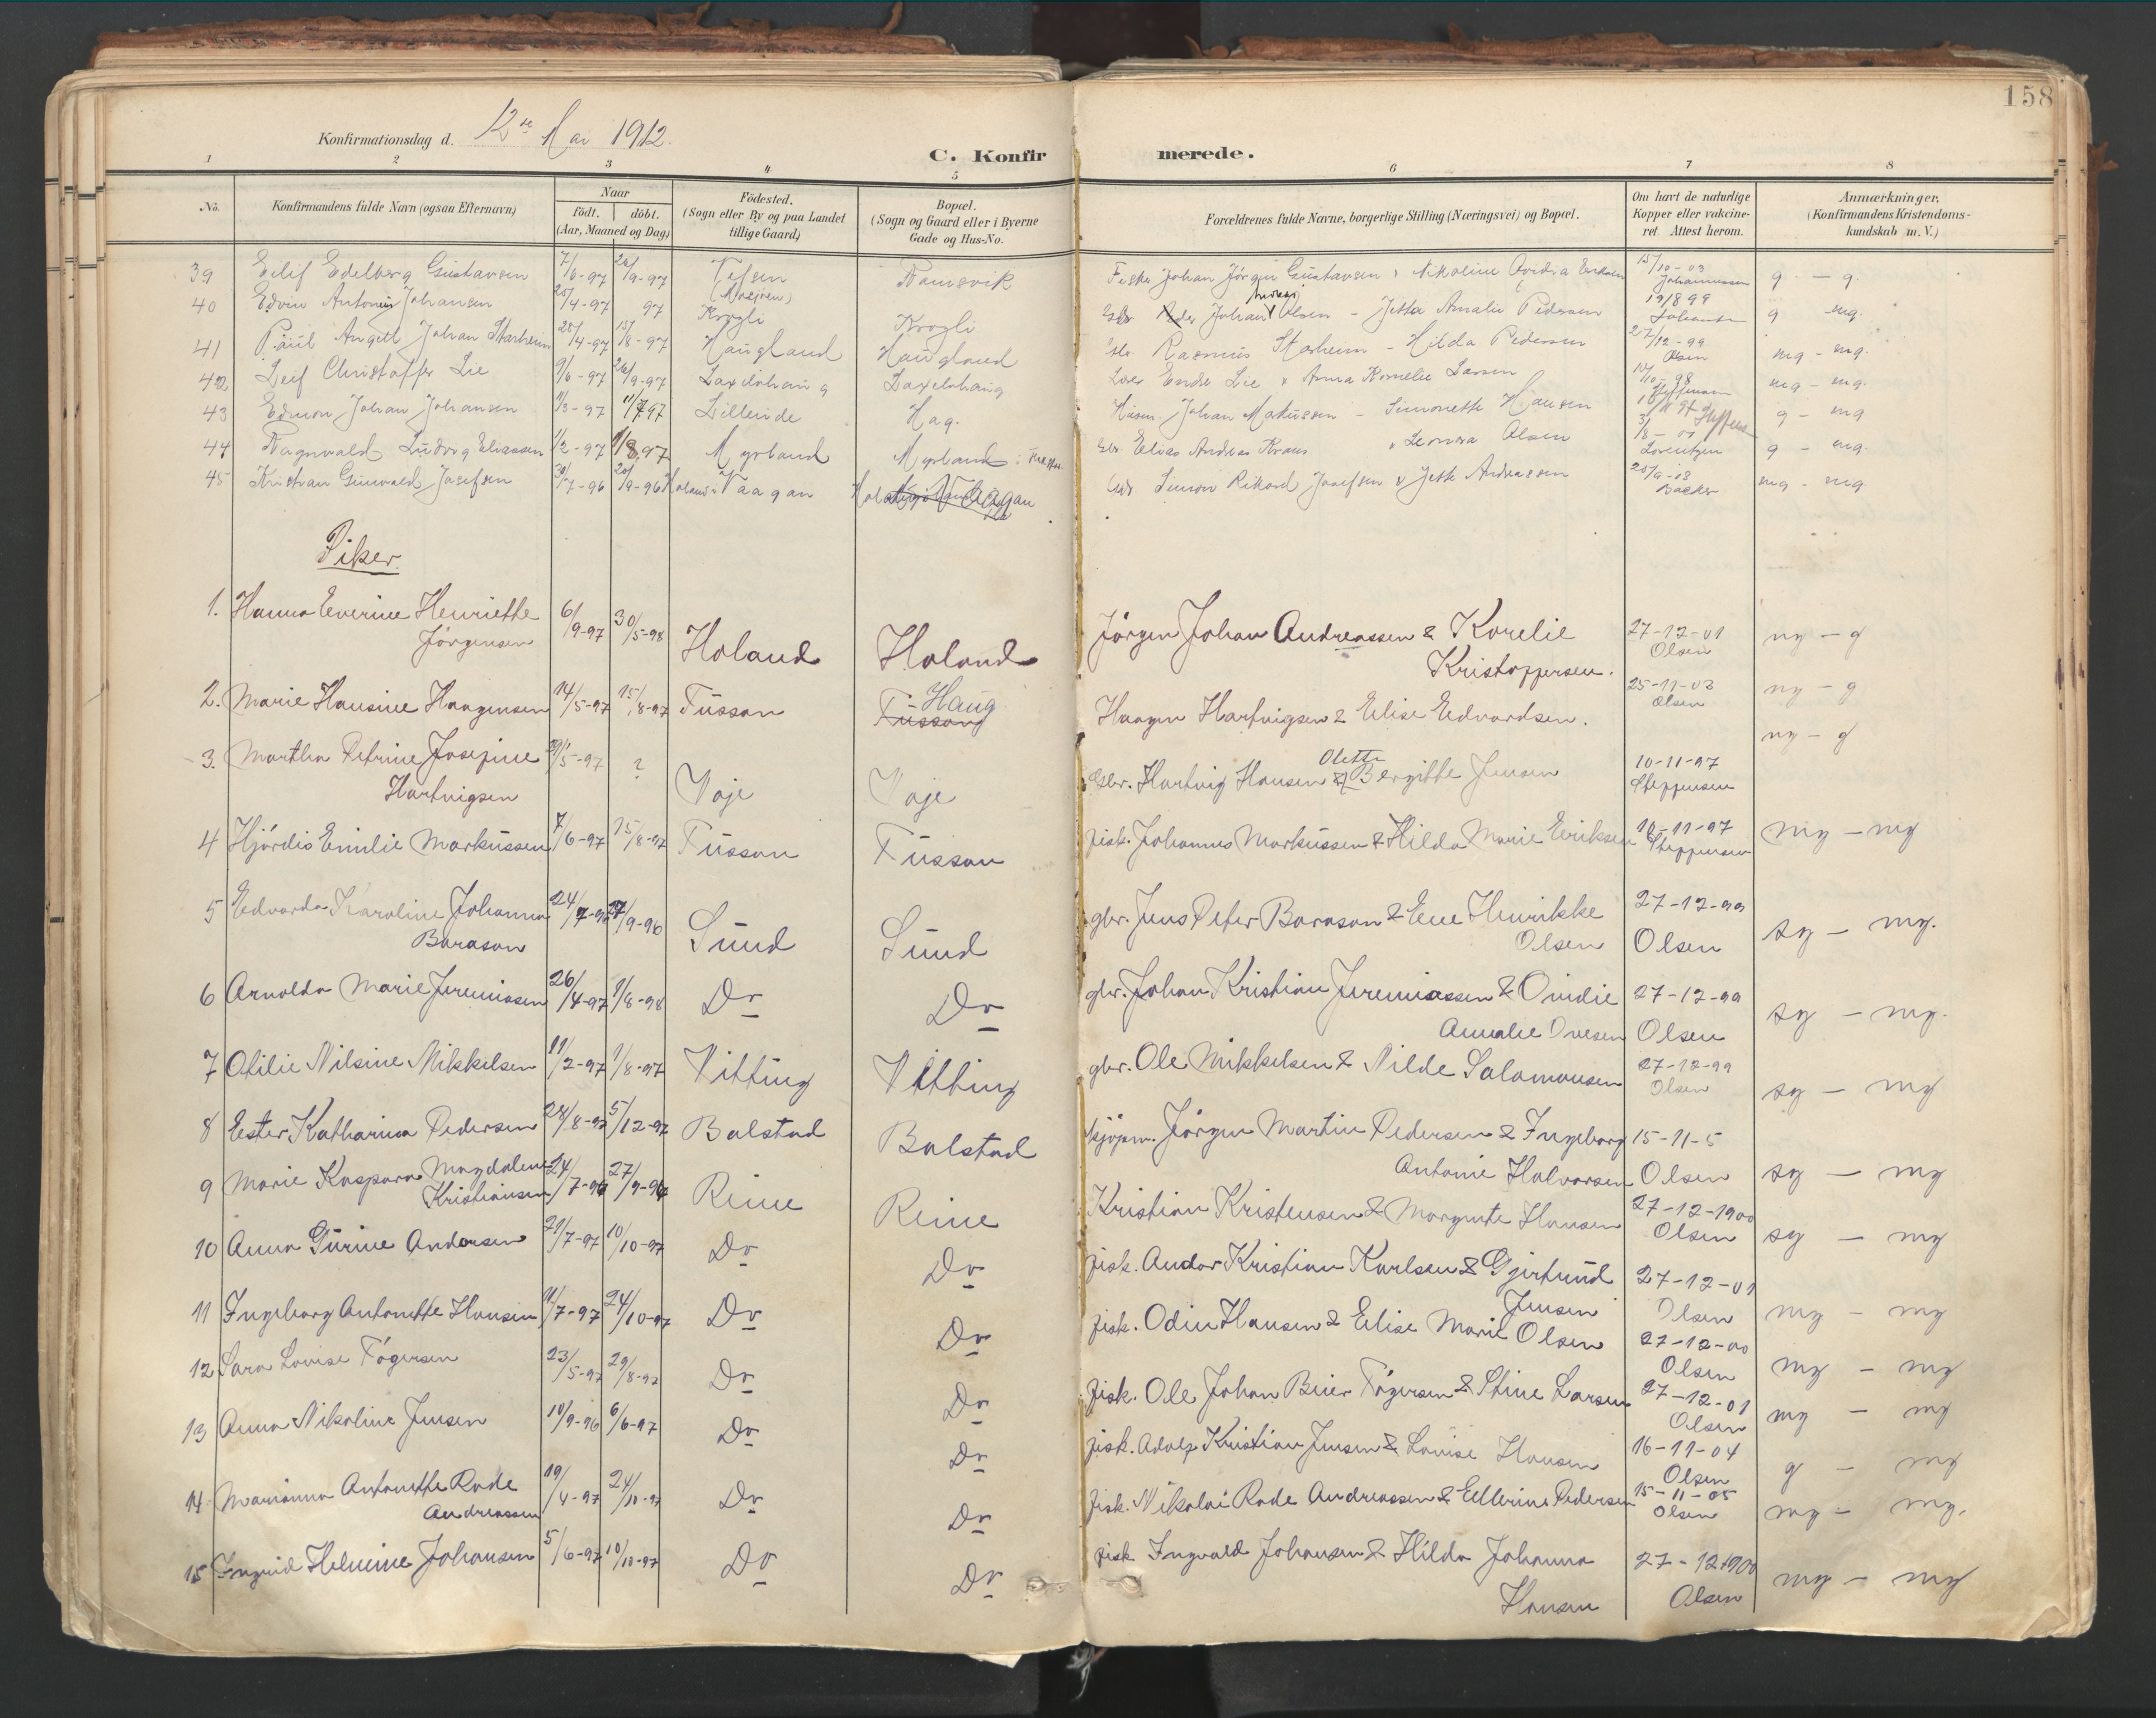 158
Konfirmationsdag d. 12te Mai 1912.
C. Konfirmerede.
1 2 3 4 5 6 7 8
No. Konfirmandens fulde Navn (ogsaa Efternavn) Naar födt. döbt. (Aar, Maaned og Dag) Födested. (Sogn eller By og paa Landet tillige Gaard) Bopæl. (Sogn og Gaard eller i Byerne Gade og Hus-No. Forældrenes fulde Navne, borgerlige Stilling (Næringsvei) og Bopæl. Om havt de naturlige Kopper eller vakcineret. Attest herom. Anmærkninger. (Konfirmandens Kristendomskundskab m. V.)
39 Eilif Edelberg Gustavsen 7/6-97 26/9-97 Vefsen (Mosjöen) Ramsvik Fisker Johan Jörgen Gustavsen & Nikoline Eriksen 15/10-03 Johannessen g - g.
40 Edvin Antonius Johansen 20/4-97 97 Krogli Krogli Johan Olsen - Jetta Amalie Pedersen 19/8 99 g mg.
41 Paul Angell Johan Storheim 28/4-97 15/8-97 Haugland Haugland Rasmus Storheim - Hilda Pedersen 27/12-99 Olsen mg - mg.
42 Leif Christoffer Lie 9/6-97 26/9-97 Laxelvhaug Laxelvhaug Endr Lie & Anna Kornelie Larsen 10/10-98 Steffensen mg - mg.
43 Edmon Johan Johansen 11/3-97 11/7 97 Lilleeide Hag. Husm. Johan Makussen - Simonette Hansen g - mg
44 Ragnvald Ludvig Eliassen 1/2-97 1/8 97 Myrland Myrland Gbr. Elias Andreas Kraus & Leonora Olsen 3/8-01 Lorentzen g - mg.
45 Kristian Gunvald Josefsen 30/7-96 20/9-96 Holand i Vaagan Simon Rikard Josefsen & Jette Andreassen 20/9-08 Backer mg - mg.
Piker.
1. Hanna Everine Henriette 6/9-97 30/5-98 Holand Holand Jörgen Johan Andreassen & Korelie 27-12-01 ng - g
Jörgensen Kristoffersen. Olsen
2. Marie Hansine Haagensen 14/5-97 15/8-97 Tussan Haug Haagen Hartvigsen & Elise Edvardsen. 25-11-03 Olsen ng - g
Tussan
3. Martha Petrine Josefine 29/5-97 ? Voje Voje Gbr. Hartvig Hansen & Olette Bergitte Jensen 10-11-97 Steffensen ng - g
Hartvigsen
4 Hjördis Emilie Markussen 7/6-97 15/8-97 Tussan Tussan fisk. Johannes Markussen & Hilda Marie Eriksen 10-11-97 Steffensen mg - mg
5 Edvarda Karoline Johanna 24/7-96 27/9-96 Sund Sund gbr. Jens Peter Borason & Ene Henrikke 27-12-99 sg - mg.
Borason Olsen Olsen
6 Arnolda Marie Jeremiassen 26/4-97 1/8-98 Do Do gbr. Johan Kristian Jeremiassen & Ovidie 27-12-99 sg - mg.
Amalie Ovesen Olsen
7 Otilie Nilsine Mikkelsen 11/2-97 1/8-97 Nitting Nitting gbr. Ole Mikkelsen & Nilde Salomonsen 27-12-99 Olsen sg - mg
8 Ester Katharina Pedersen 28/8-97 5/12-97 Balstad Balstad kjöpm. Jörgen Martin Pedersen & Ingeborg 15-11-5 sg - mg
Antonie Halvorsen Olsen
9 Marie Kaspara Magdalene 24/7-96 27/9-96 Reine Reine Kristian Kristensen & Margrete Hansen 27-12-1900 Olsen sg - mg
Kristiansen
10 Anna Gurine Andersen 21/7-97 10/10-97 Do Do fisk. Andor Kristian Karlsen & Gjertrud 27-12-01 mg - mg
Jensen Olsen
11 Ingeborg Antonette Hansen 11/7-97 24/10-97 Do Do fisk. Odin Hansen & Elise Marie Olsen 27-12-00 Olsen mg - mg
12 Sara Lovise Fögersen 23/5-97 29/8-97 Do Do fisk. Ole Johan Beier Fögersen & Stine Larsen 27-12-01 Olsen mg - mg
13 Anna Nikoline Jensen 10/9-96 6/6-97 Do Do fisk. Adolf Kristian Jensen & Lovise Hansen 16-11-04 Olsen g - mg
14 Marianna Antonette Rode 19/4-97 24/10-97 Do Do fisk. Nikolai Rode Andreassen & Ellerine Pedersen 15-11-05 Olsen mg - mg.
Andreassen
15 Ingrid Helmine Johansen 5/6-97 10/10-97 Do Do fisk Ingvald Johansen & Hilda Johanna 27-12-1900 mg - mg
Hansen Olsen